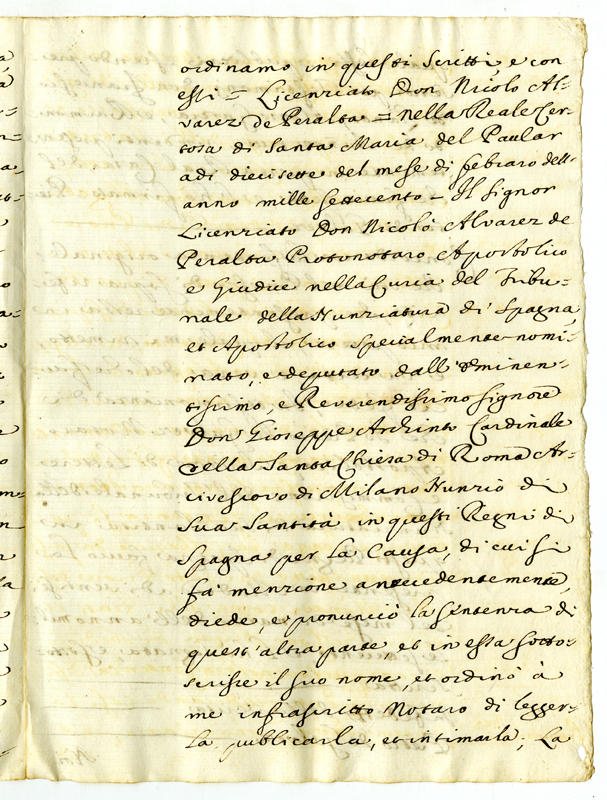 ordinamo in questi scritti, e con
essi = Licenziato Don Nicolo Al-
varez de Peralta = nella Reale Cer-
tosa di Santa Maria del Paular
adi diecisette del mese di febraro dell'
anno mille settecento = Il Signor
Licenziato Don Nicolò Alvarez de
Peralta Protonotaro Apostolico
e Giudice nella Curia del Tribu-
nale della Nunziatura di Spagna,
et Apostolico specialmente nomi-
nato, e deputato dall'Eminen-
tissimo, e Reverendissimo Signore
Don Gioseppe Archinto Cardinale
della Santa Chiesa di Roma Ar-
civescovo di Milano Nunzio di
Sua Santità in questi Regni di
Spagna per la Causa, di cui si
fà menzione antecedentemente,
diede, e pronunciò la sentenza di
quest'altra parte, et in essa sotto-
scrisse il suo nome, et ordinò à
me infrascritto Notaro di legger-
la publicarla, et intimarla; La